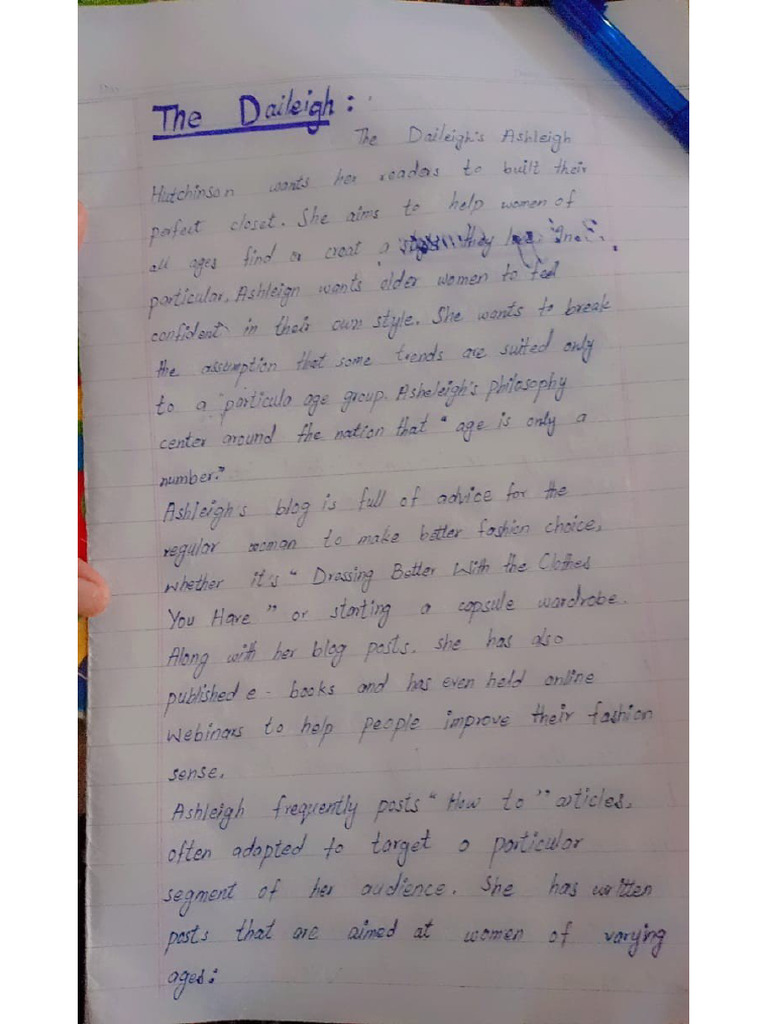 The Daileigh:
The Daileigh's Ashleigh
Hutchinson wants her readers to built their
perfect closet. She aims to help women of
all ages find or creat a they
particular, Ashleign wants older women to feel
confident in their own style. She wants to break
the assumption that some trends are suited only
to a particula age group. Asheleigh's philosophy
center around the nation that " age is only a
number."
Ashleigh's blog is full of advice for the
regular woman to make better fashion choice,
whether it's " Dressing Better With the Clothes
You Have " or starting a capsule wardrobe.
Along with her blog posts. she has also
published e - books and has even held online
webinars to help people improve their fashion
sense.
Ashleigh frequently posts " How to " articles,
often adapted to target a particular
segment of her audience. She has written
posts that are aimed at women of varying
ages: